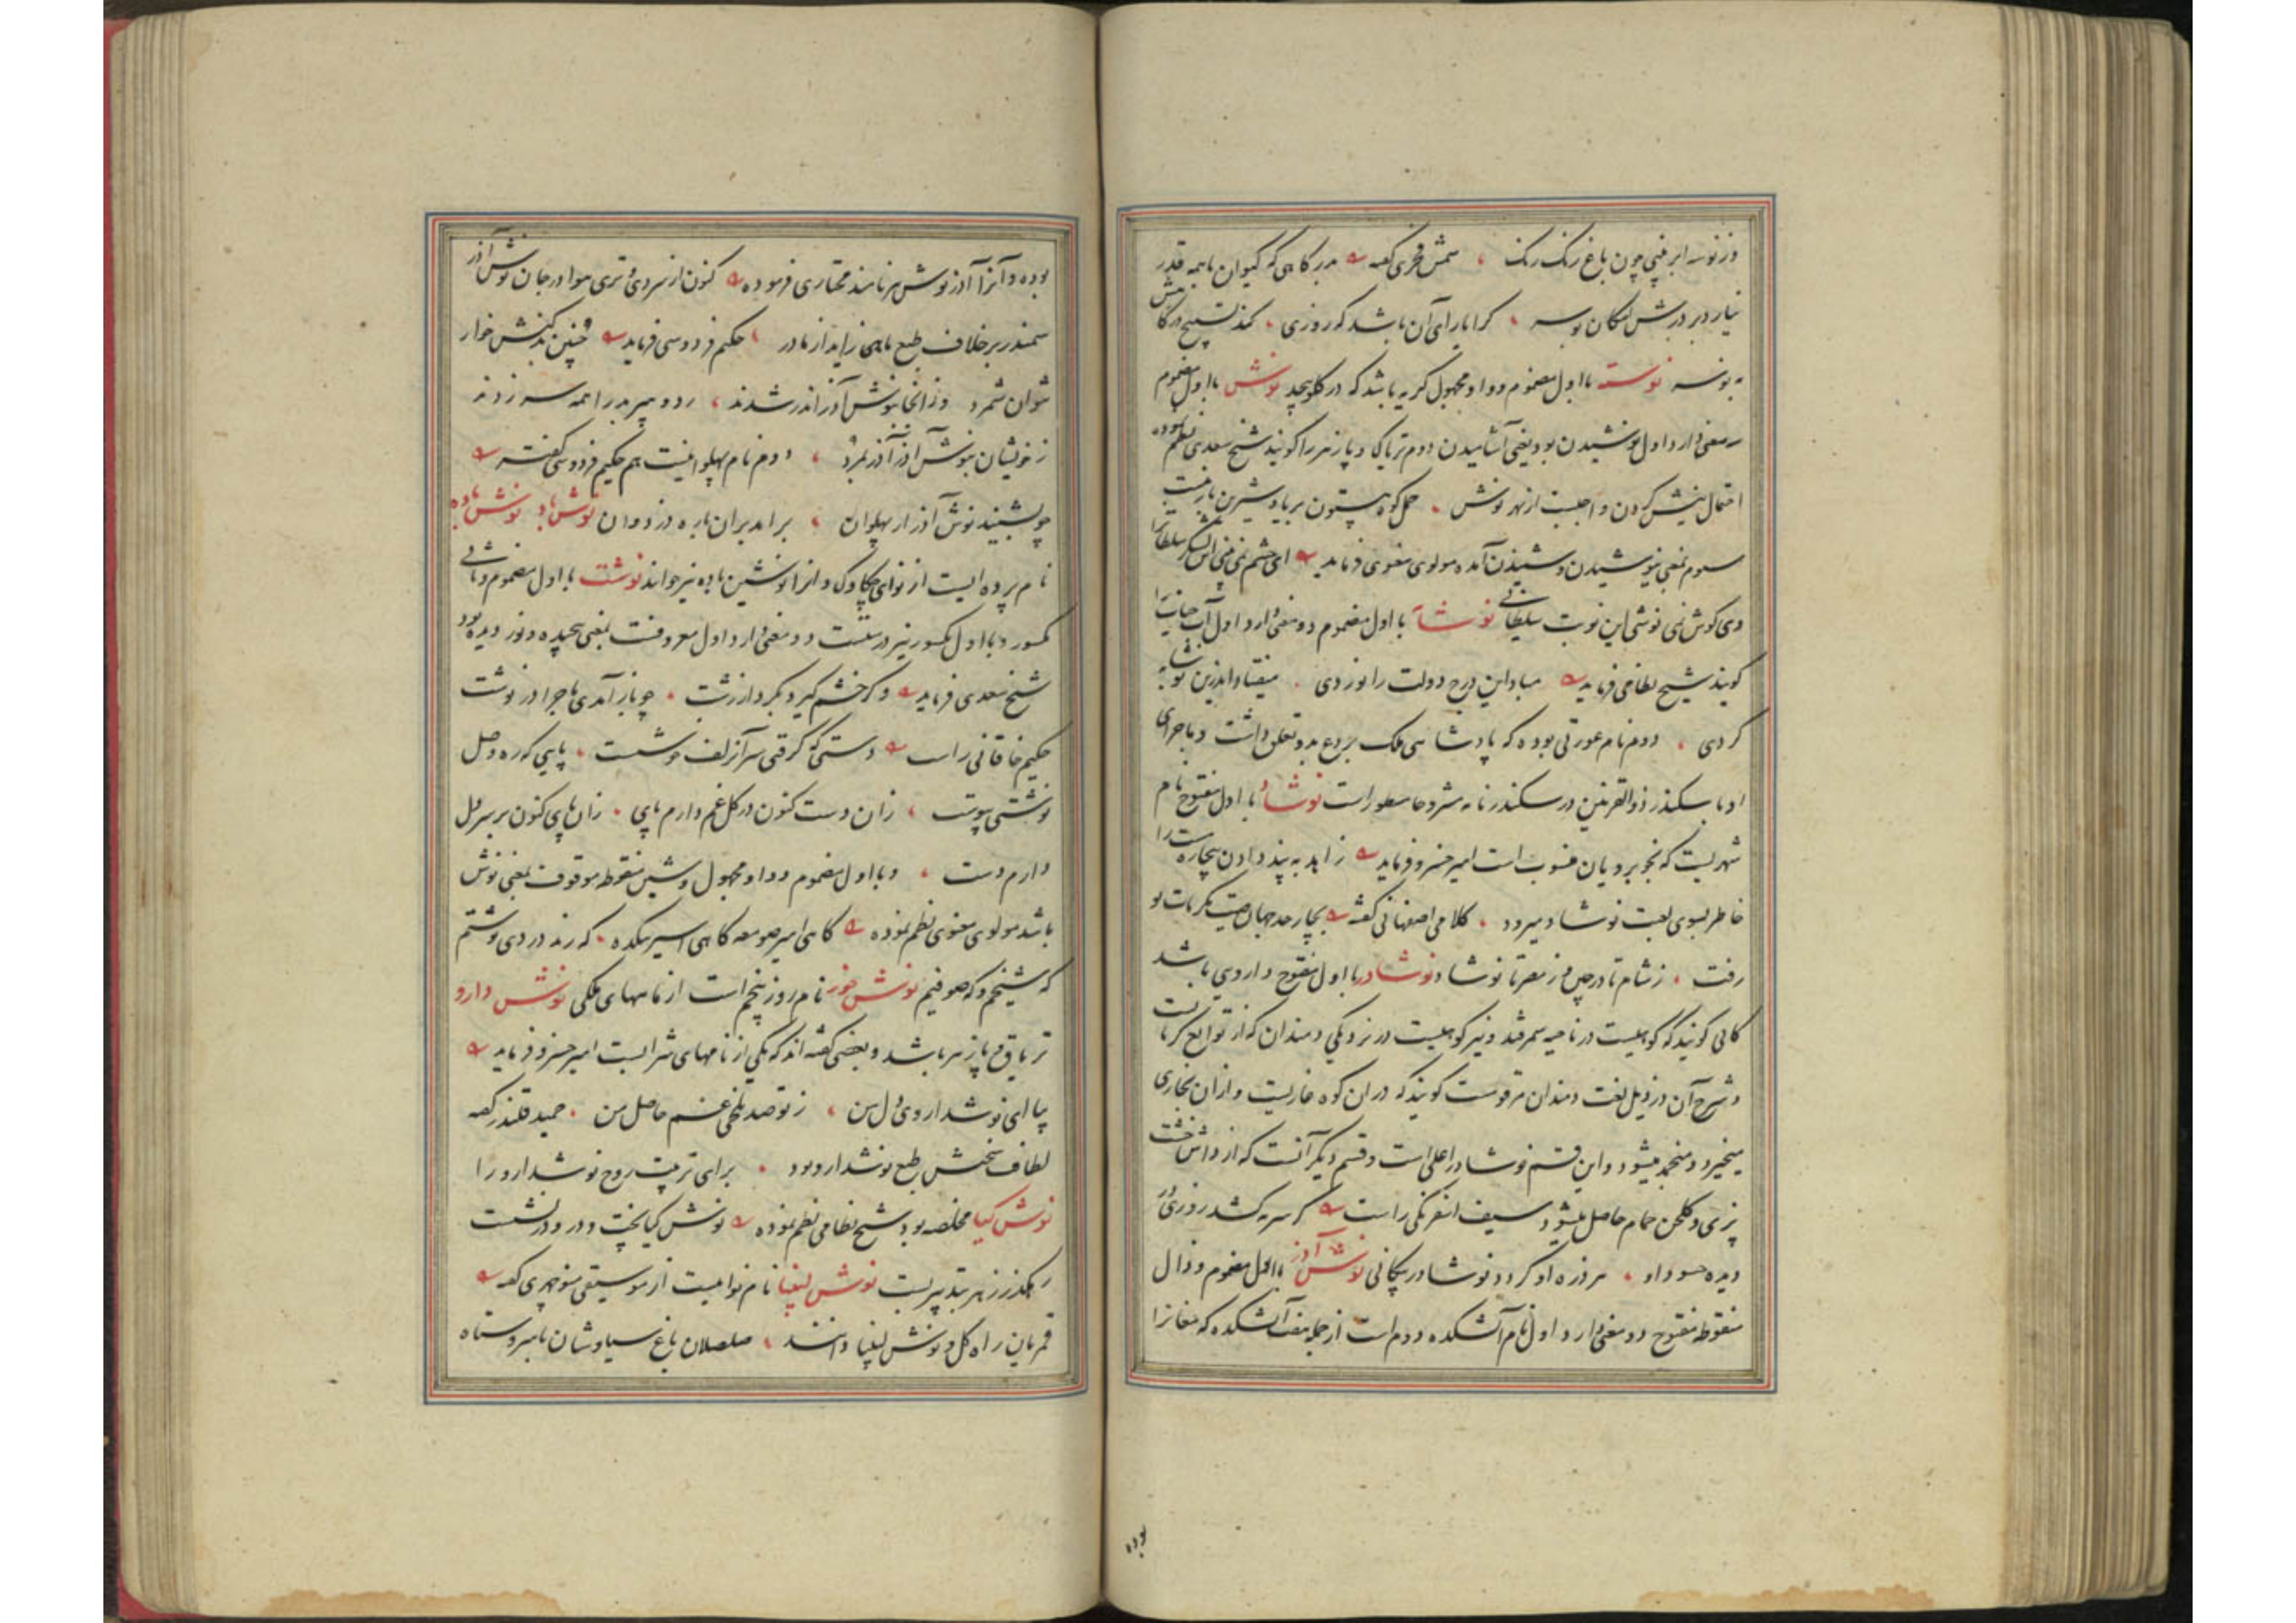 وز نوسه ابر فنچی چون باغ رنک رنک ، شمس فخری گفته بدرکاهی که کیوان باهمه قدر
نیارد بر درش امکان بوسه ، کرا یارای آن باشد که روزی ، کند تسبیح درکاهش
به بوسه نوسته با اول مضموم و واو مجهول کریه باشد که در کلو پیچد نوش با اول مضموم
سه معنی دارد اول نوشیدن بود یعنی آشامیدن دوم تریاک و پازهر را کویند شیخ سعدی نظم نموده
احتمال نیش کردن واجبست از بهر نوش ، حمل کوه بیستون بر یاد شیرین بار نیست
سوم بمعنی نیوشیدن و شنیدن آمده مولوی معنوی فرماید ای چشم نمی بینی این لشکر سلطانرا
وی کوش نمی نوشی این نوبت سلطانی نوشابه با اول مضموم دو معنی دارد اول آب حیات را
کویند شیخ نظامی فرماید مبادا این درج دولت را نوردی ، میفتاد اندرین نوشابه
کردی ، دوم نام عورتی بوده که پادشاهی ملک بردع بدو تعلق داشت و ماجرای
او با سکندر ذوالقرنین در سکندرنامه مشروحا مسطور است نوشاد با اول مفتوح نام
شهریست که بخوبرویان منسوب است امیر خسرو فرماید زاهد به پند دادن بیچاره را
خاطر بسوی لعبت نوشاد میرود ، کلامی اصفهانی گفته بچار حد جهان صیت مکرمات تو
رفت ، ز شام تا در چین و ز مصر تا نوشاد نوشادر با اول مفتوح داروی باشد
کانی کویند که کوهیست در ناحیه سمرقند و نیز کوهیست در نزدیکی دمندان که از توابع کرمانست
و شرح آن در ذیل لغت دمندان مرقومست کویند که در ان کوه غاریست و از ان بخاری
میخیزد و منجمد میشود و این قسم نوشادر اعلی است و قسم دیگر آنست که از داش خشت
پزی و کلخن حمام حاصل میشود سیف اسفرنکی راست کر سرمه کشد روزی در
دیده حسود او ، هر ذره او کردد نوشادر پیکانی نوش آذر با اول مضموم و ذال
منقوطه مفتوح دو معنی دارد اول نام آتشکده دوم است از جمله هفت آتشکده که مغانرا
بوده
بوده و آنرا آذر نوش هم نامند مختاری فرموده کنون از سردی و تری هوا در جان نوش آذر
سمندر بر خلاف طبع ماهی زاید از مادر ، حکیم فردوسی فرماید چنین بد کنش خوار
نتوان شمرد وز آنجا بنوش آذر اندر شدند ، رد و هیربد را همه سر زدند
ز خونشان بنوش آذر آذر بمرد ، دوم نام پهلوانیست هم حکیم فردوسی گفته
چو بشنید نوش آذر از پهلوان ، بر آمد بران باره دژ دوان نوش باد نوش باده
نام پرده ایست از نوای چکاوک و انرا نوشین باده نیز خوانند نوشت با اول مضموم و ثانی
مکسور و با اول مکسور نیز درستست دو معنی دارد اول معروفست بمعنی پیچیده و نوردیده بود
شیخ سعدی فرماید وکر خشم کیرد بکردار زشت ، چو باز آمدی ماجرا در نوشت
حکیم خاقانی راست دستی که کرفتی سر آن زلف چو شست ، پایی که ره وصل
نوشتی پیوست ، زان دست کنون در کل غم دارم پای ، زان پای کنون بر سر دل
دارم دست ، و با اول مضموم و واو مجهول و شین منقوطه موقوف بمعنی نوش
باشد مولوی معنوی نظم نموده کاهی امیر صومعه کاهی اسیر میکده ، که رند دردی نوشتم
که شیخم و که صوفیم نوش خور نام روز پنجم است از ماههای ملکی نوش دارو
تریاق و پازهر باشد و بعضی گفته اند که یکی از نامهای شرابست امیر خسرو فرماید
بیا ای نوشداروی دل من ، ز تو صد تلخی غم حاصل من ، حمید قلندر گفته
لطافت سخنش طبع نوشدارو بود ، برای تربیت روح نوشدارو را
نوش کیا مخلصه بود شیخ نظامی نظم نموده نوش کیا پخت و درو درنشست
رهکذر زهر بتدبیر بست نوش لبینا نام نواییست از موسیقی منوچهری گفته
قمریان راه کل و نوش لبینا دانند ، صلصلان باغ سیاوشان با سرو ستاه